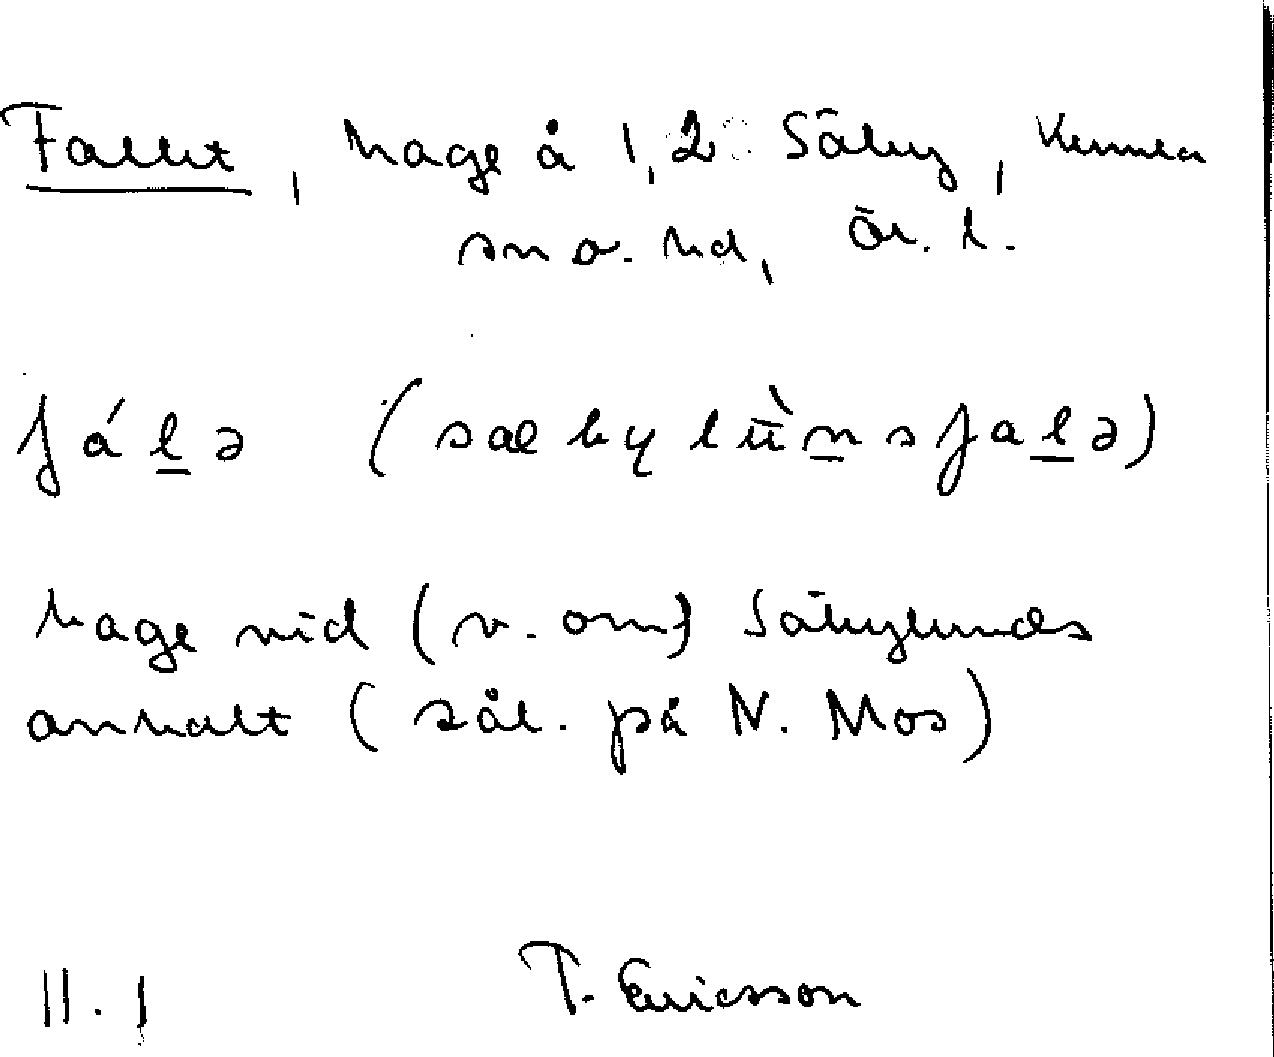 Fallet, hage å 1,2 Säby, Kumla
sn o. hd, Ör. l.
fál̲ə (sæbylùn̲sfal̲ə)
hage vid (v. om) Säbylunds
anhalt (sål. på N. Mos)
11.1 T. Ericsson